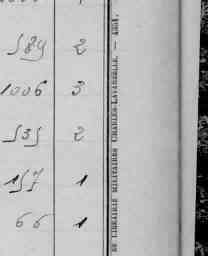 589 2
1006 3
535 2
157 1
66 1
LIBRAIRIE MILITAIRE CHARLES-LAVAUZELLE. —